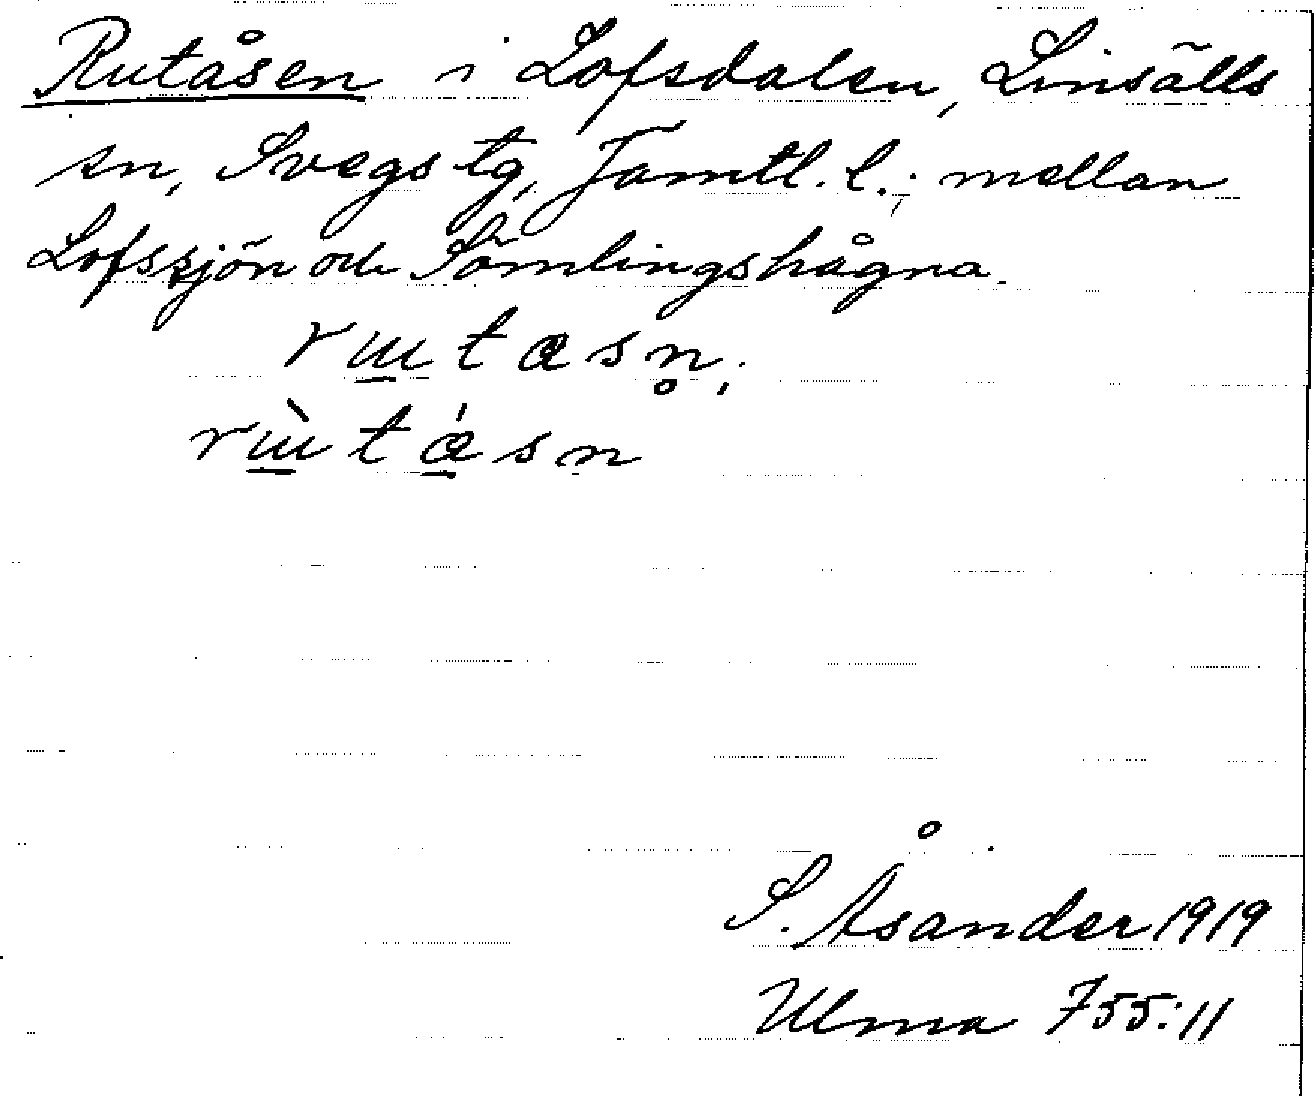 Rutåsen i Lofsdalen, Linsälls
sn, Svegs tg, Jämtl. l.; mellan
Lofssjön och Sömlingshågna.
S. Åsander 1919
Ulma 755:11